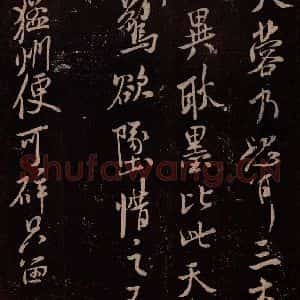 蓉乃望三
異耿墨比此天
驚欲墜惜之
猛州便可祥只留
Shufawang.Cn